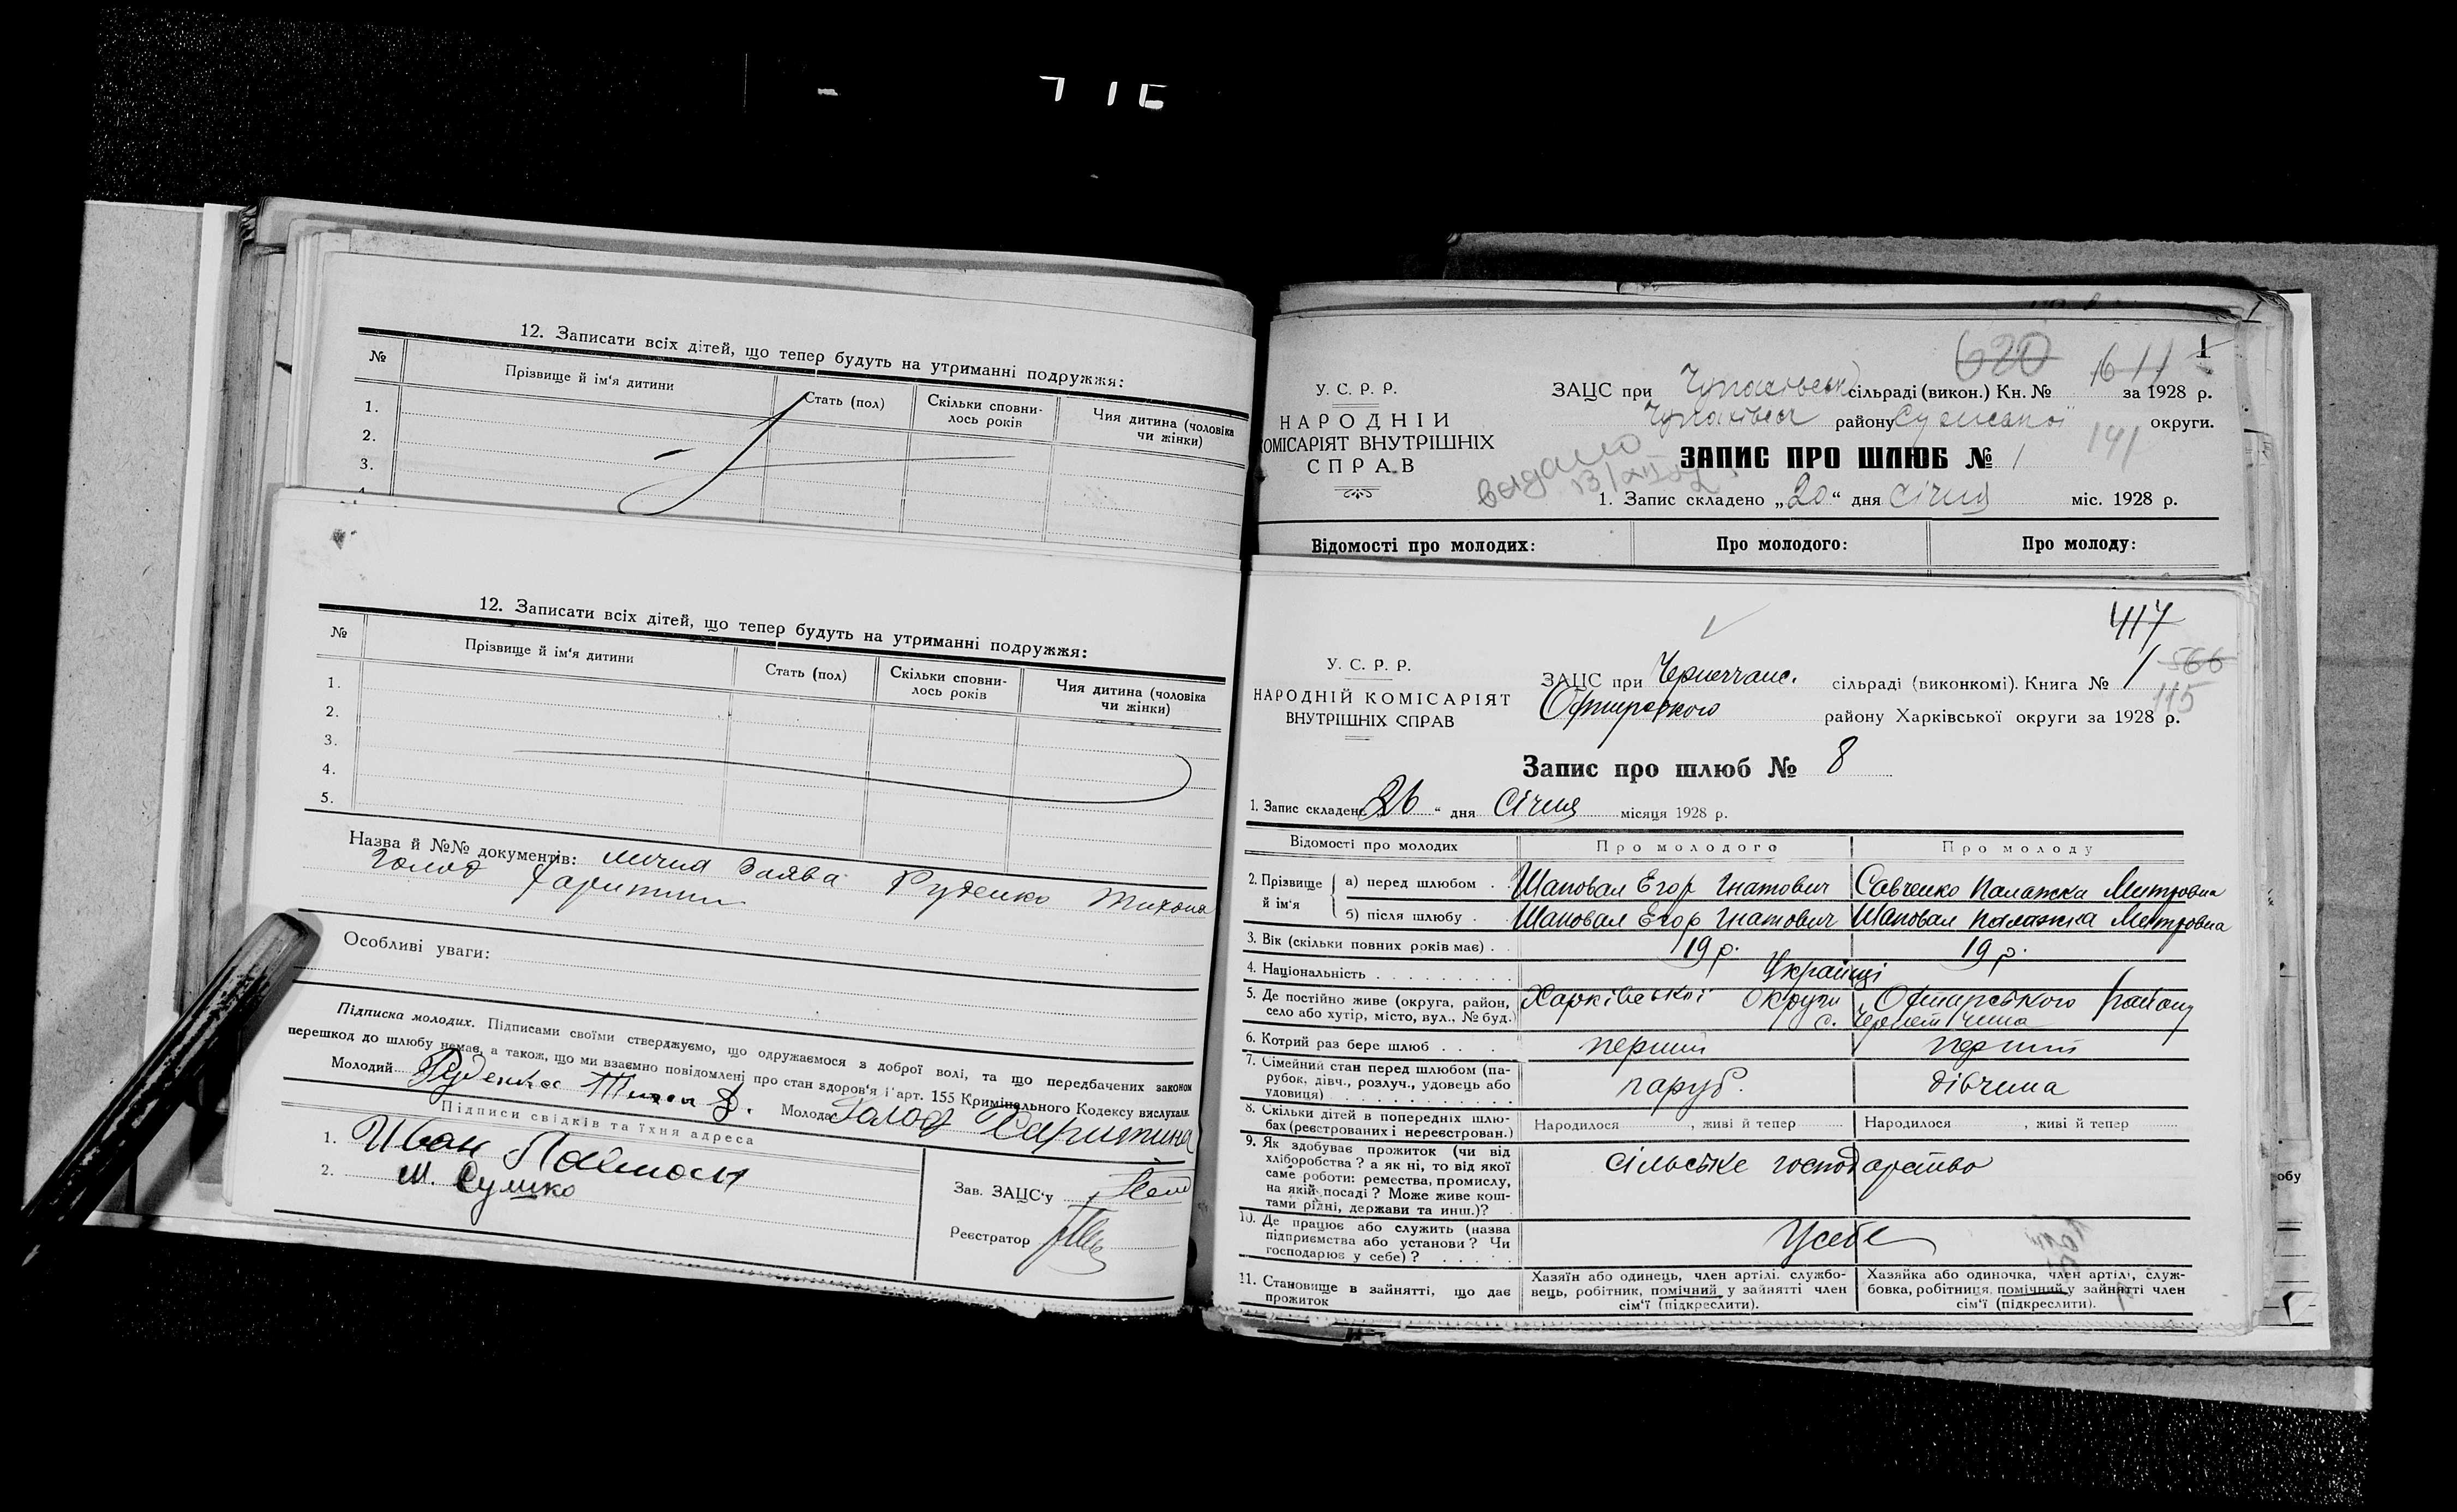 12. Записати всіх дітей, що тепер будуть на утриманні подружжя:
№ Прізвище й ім'я дитини Стать (пол) Скільки сповнилось років Чия дитина (чоловіка чи жінки)
1.
2.
3.
12. Записати всіх дітей, що тепер будуть на утриманні подружжя:
№ Прізвище й ім'я дитини Стать (пол) Скільки сповнилось років Чия дитина (чоловіка чи жінки)
1.
2.
3.
4.
5.
Назва й №№ документів: лична заява Руденко Тихона
Голод
Особливі уваги:
Підписка молодих. Підписами своїми стверджуємо, що одружаємося з доброї волі, та що передбачених законом
перешкод до шлюбу немає, а також, що ми взаємно повідомлені про стан здоров'я і арт. 155 Кримінального Кодексу вислухали.
Молодий Руденко Молода Голод
Підписи свідків та їхня адреса
1. Иван
2. М. Сушко
Зав. ЗАЦС'у
Реєстратор
У. С. Р. Р.
НАРОДНІЙ
КОМІСАРІЯТ ВНУТРІШНІХ
СПРАВ
620 611 1
ЗАЦС при Чупахівськ сільраді (викон.) Кн. № за 1928 р.
Чупахівськ району Сумської округи.
141
видано
ЗАПИС ПРО ШЛЮБ № 1
1. Запис складено „20“ дня січня міс. 1928 р.
Відомості про молодих: Про молодого: Про молоду:
417
566
115
У. С. Р. Р.
НАРОДНІЙ КОМІСАРІЯТ
ВНУТРІШНІХ СПРАВ
ЗАЦС при Чернеччанс. сільраді (виконкомі). Книга № 1
Охтирського району Харківської округи за 1928 р.
Запис про шлюб № 8
1. Запис складено „26“ дня Січня місяця 1928 р.
Відомості про молодих Про молодого Про молоду
2. Прізвище й ім'я а) перед шлюбом . . Шаповал Егор Гнатович Савченко Палажка Митровна
б) після шлюбу . Шаповал Егор Гнатович Шаповал Палажка Митровна
3. Вік (скільки повних років має) . . 19 р. 19 р.
4. Національність . . . . . . . . . . Українці
5. Де постійно живе (округа, район, село або хутір, місто, вул., № буд.) Харківської округи Охтирського району
с. Чернетчина
6. Котрий раз бере шлюб . . . . перший перший
7. Сімейний стан перед шлюбом (парубок, дівч., розлуч., удовець або удовиця) . . . . . . . . . . . паруб. дівчина
8. Скільки дітей в попередніх шлюбах (реєстрованих і нереєстрован.) Народилося , живі й тепер Народилося , живі й тепер
9. Як здобуває прожиток (чи від хліборобства? а як ні, то від якої саме роботи: ремества, промислу, на якій посаді? Може живе коштами рідні, держави та инш.)? сільське господарство
10. Де працює або служить (назва підприємства або установи? Чи господарює у себе)? . . . . . Усебе
11. Становище в зайнятті, що дає прожиток Хазяїн або одинець, член артілі, службовець, робітник, помічний у зайнятті член сім'ї (підкреслити). Хазяйка або одиночка, член артілі, службовка, робітниця, помічний у зайнятті член сім'ї (підкреслити).